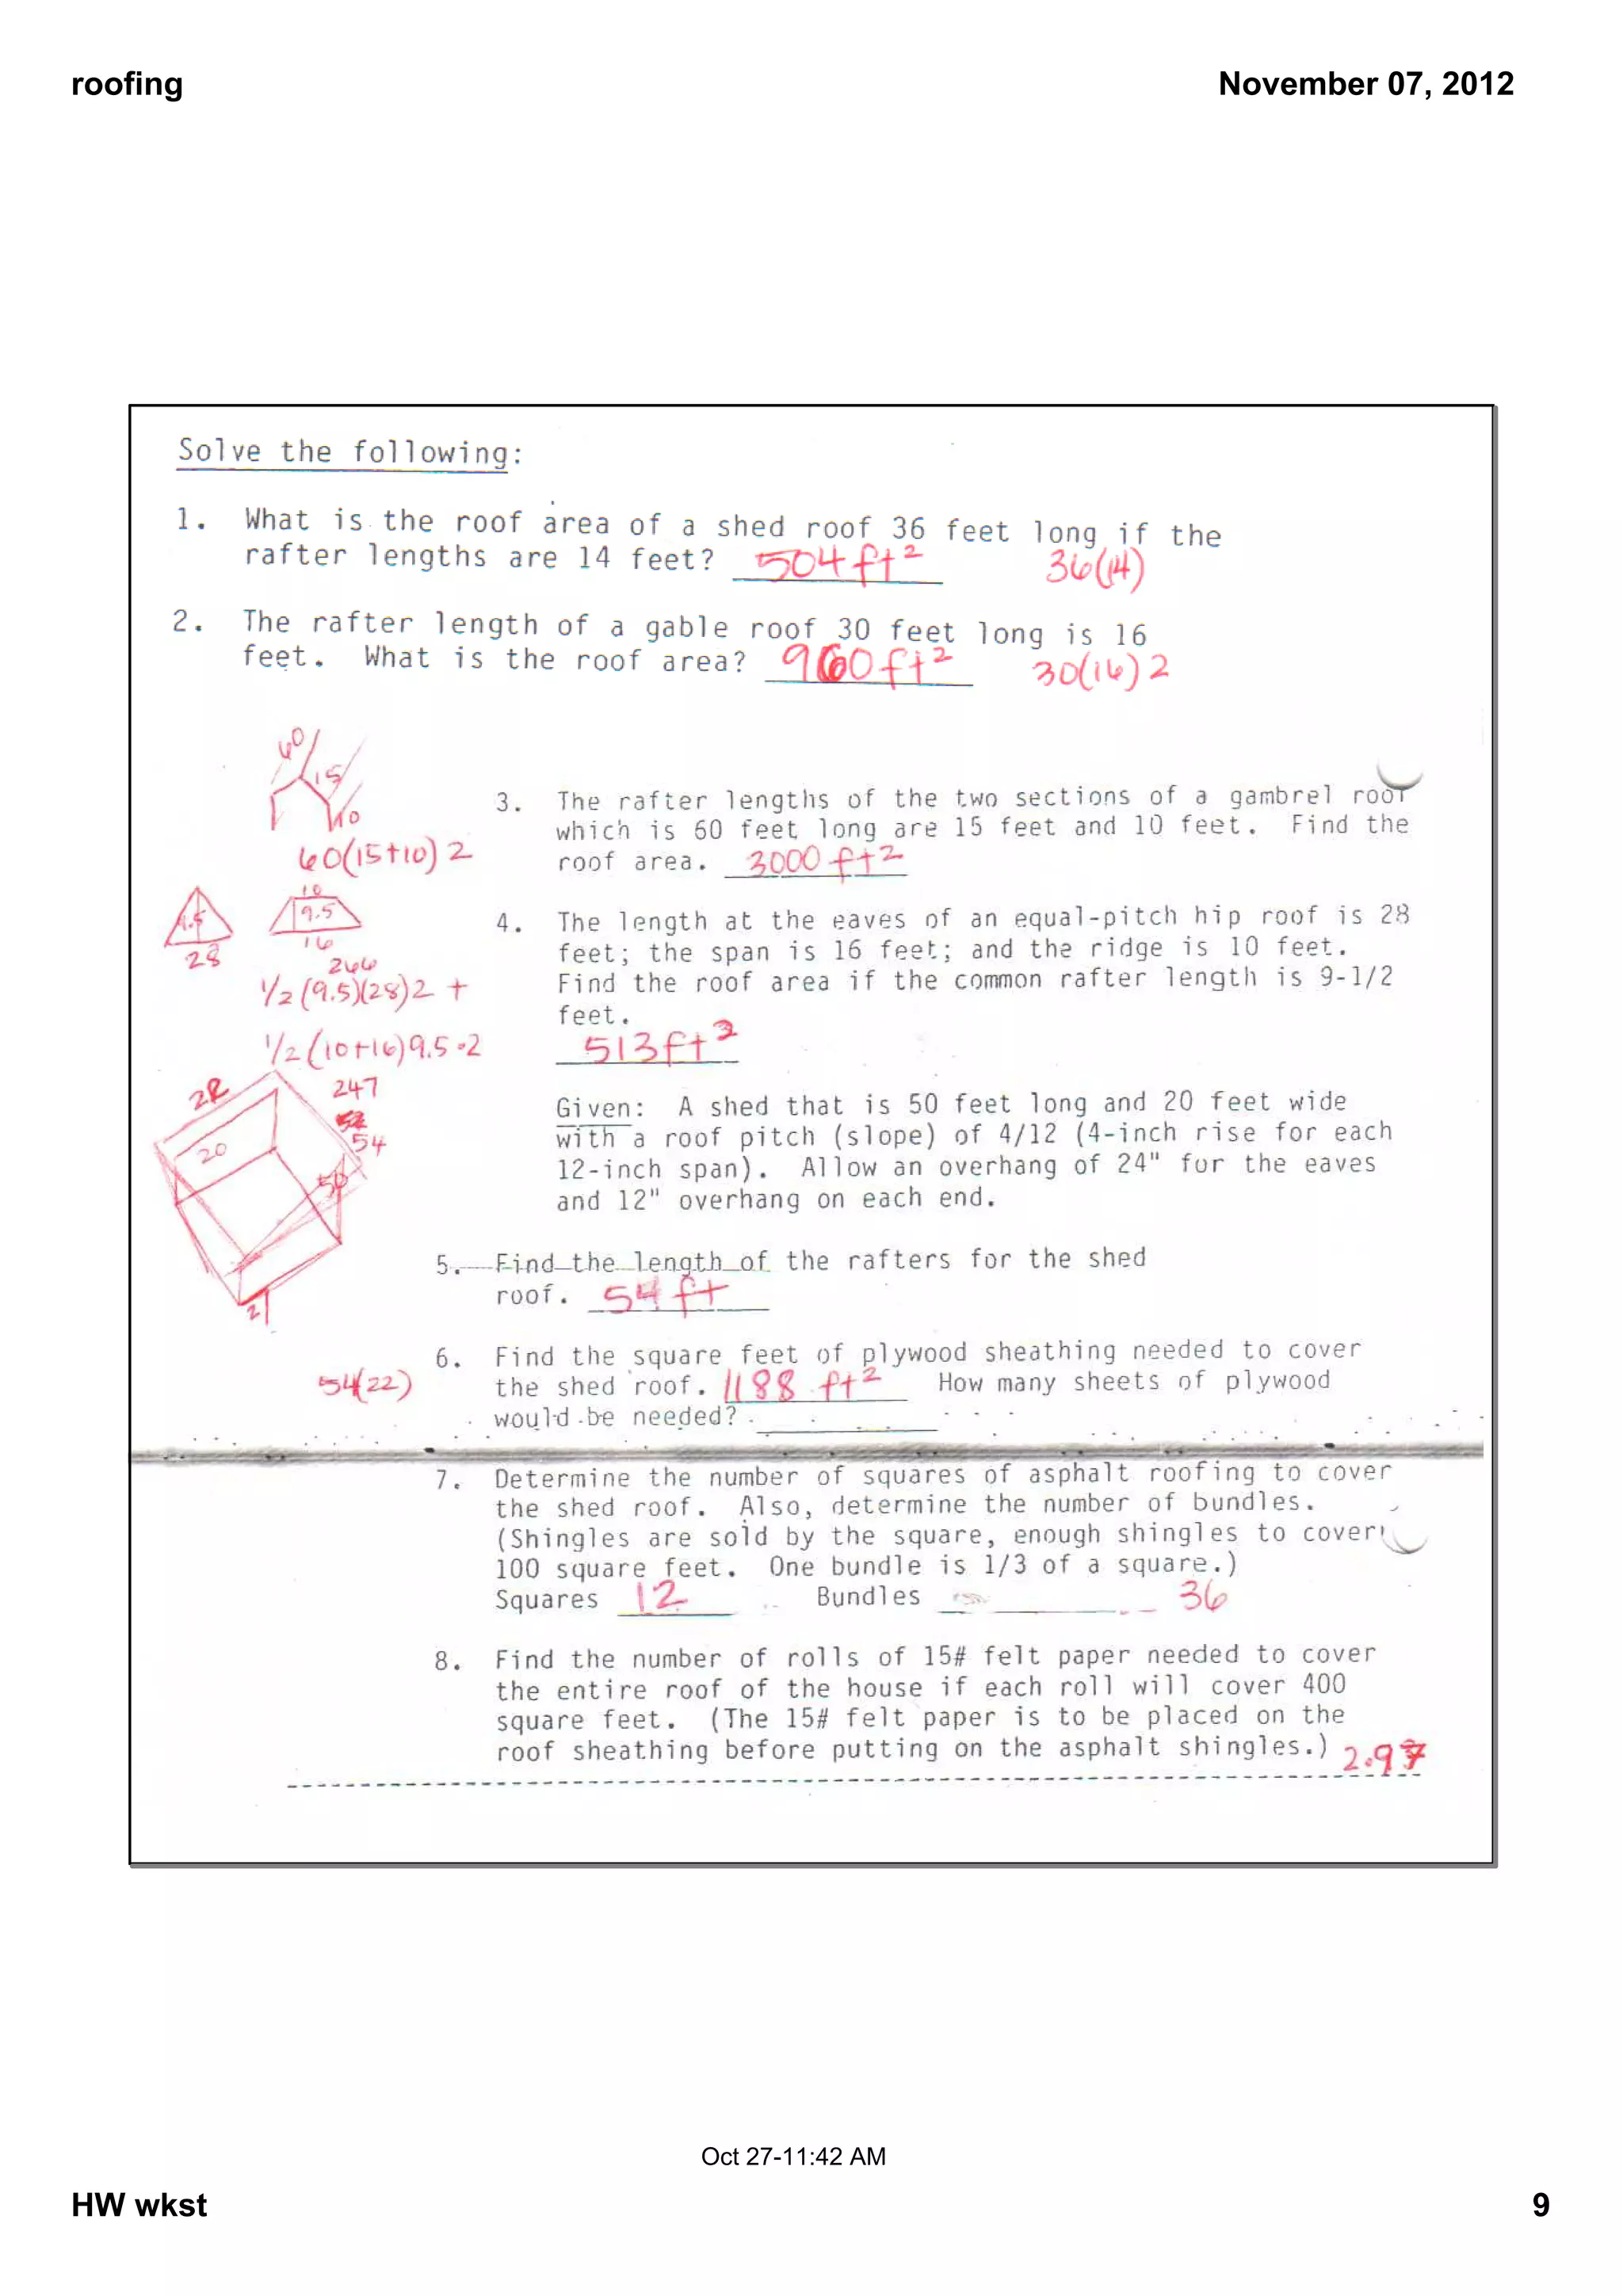 roofing
November 07, 2012
Solve the following:
1. What is the roof area of a shed roof 36 feet long if the
rafter lengths are 14 feet? 504 ft² 36(14)
2. The rafter length of a gable roof 30 feet long is 16
feet. What is the roof area? 960 ft² 30(16)2
60
15
10
60(15+10)2
3. The rafter lengths of the two sections of a gambrel roof
which is 60 feet long are 15 feet and 10 feet. Find the
roof area. 3000 ft²
9.5
28
10
9.5
16
266
1/2(9.5)(28)2 +
1/2(10+16)9.5·2
247
4. The length at the eaves of an equal-pitch hip roof is 28
feet; the span is 16 feet; and the ridge is 10 feet.
Find the roof area if the common rafter length is 9-1/2
feet.
513 ft²
22
20
54
50
21
Given: A shed that is 50 feet long and 20 feet wide
with a roof pitch (slope) of 4/12 (4-inch rise for each
12-inch span). Allow an overhang of 24" for the eaves
and 12" overhang on each end.
5. Find the length of the rafters for the shed
roof. 54 ft
6. Find the square feet of plywood sheathing needed to cover
54(22)
the shed roof. 1188 ft² How many sheets of plywood
would be needed?
7. Determine the number of squares of asphalt roofing to cover
the shed roof. Also, determine the number of bundles.
(Shingles are sold by the square, enough shingles to cover
100 square feet. One bundle is 1/3 of a square.)
Squares 12 Bundles 36
8. Find the number of rolls of 15# felt paper needed to cover
the entire roof of the house if each roll will cover 400
square feet. (The 15# felt paper is to be placed on the
roof sheathing before putting on the asphalt shingles.) 2.97
Oct 27-11:42 AM
HW wkst
9